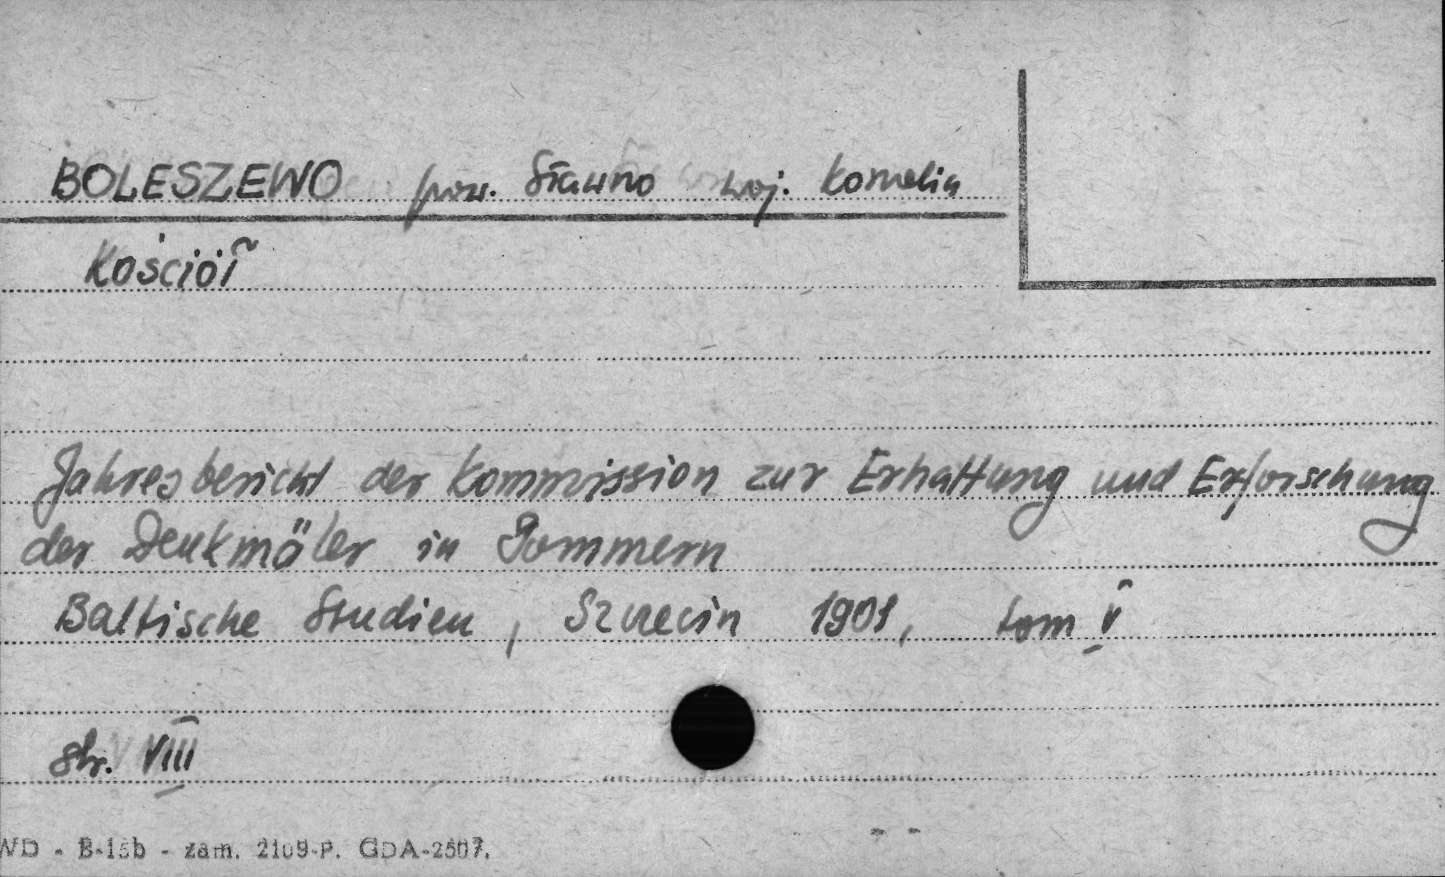 BOLESZEWO pow. Sławno woj. Koszalin
Kościół
Jahresbericht der Kommission zur Erhaltung und Erforschung
der Denkmäler in Pommern
Baltische Studien, Szczecin 1901, tom V
str. VIII
WD - B-15b - zam. 2109-P. GDA-2507.